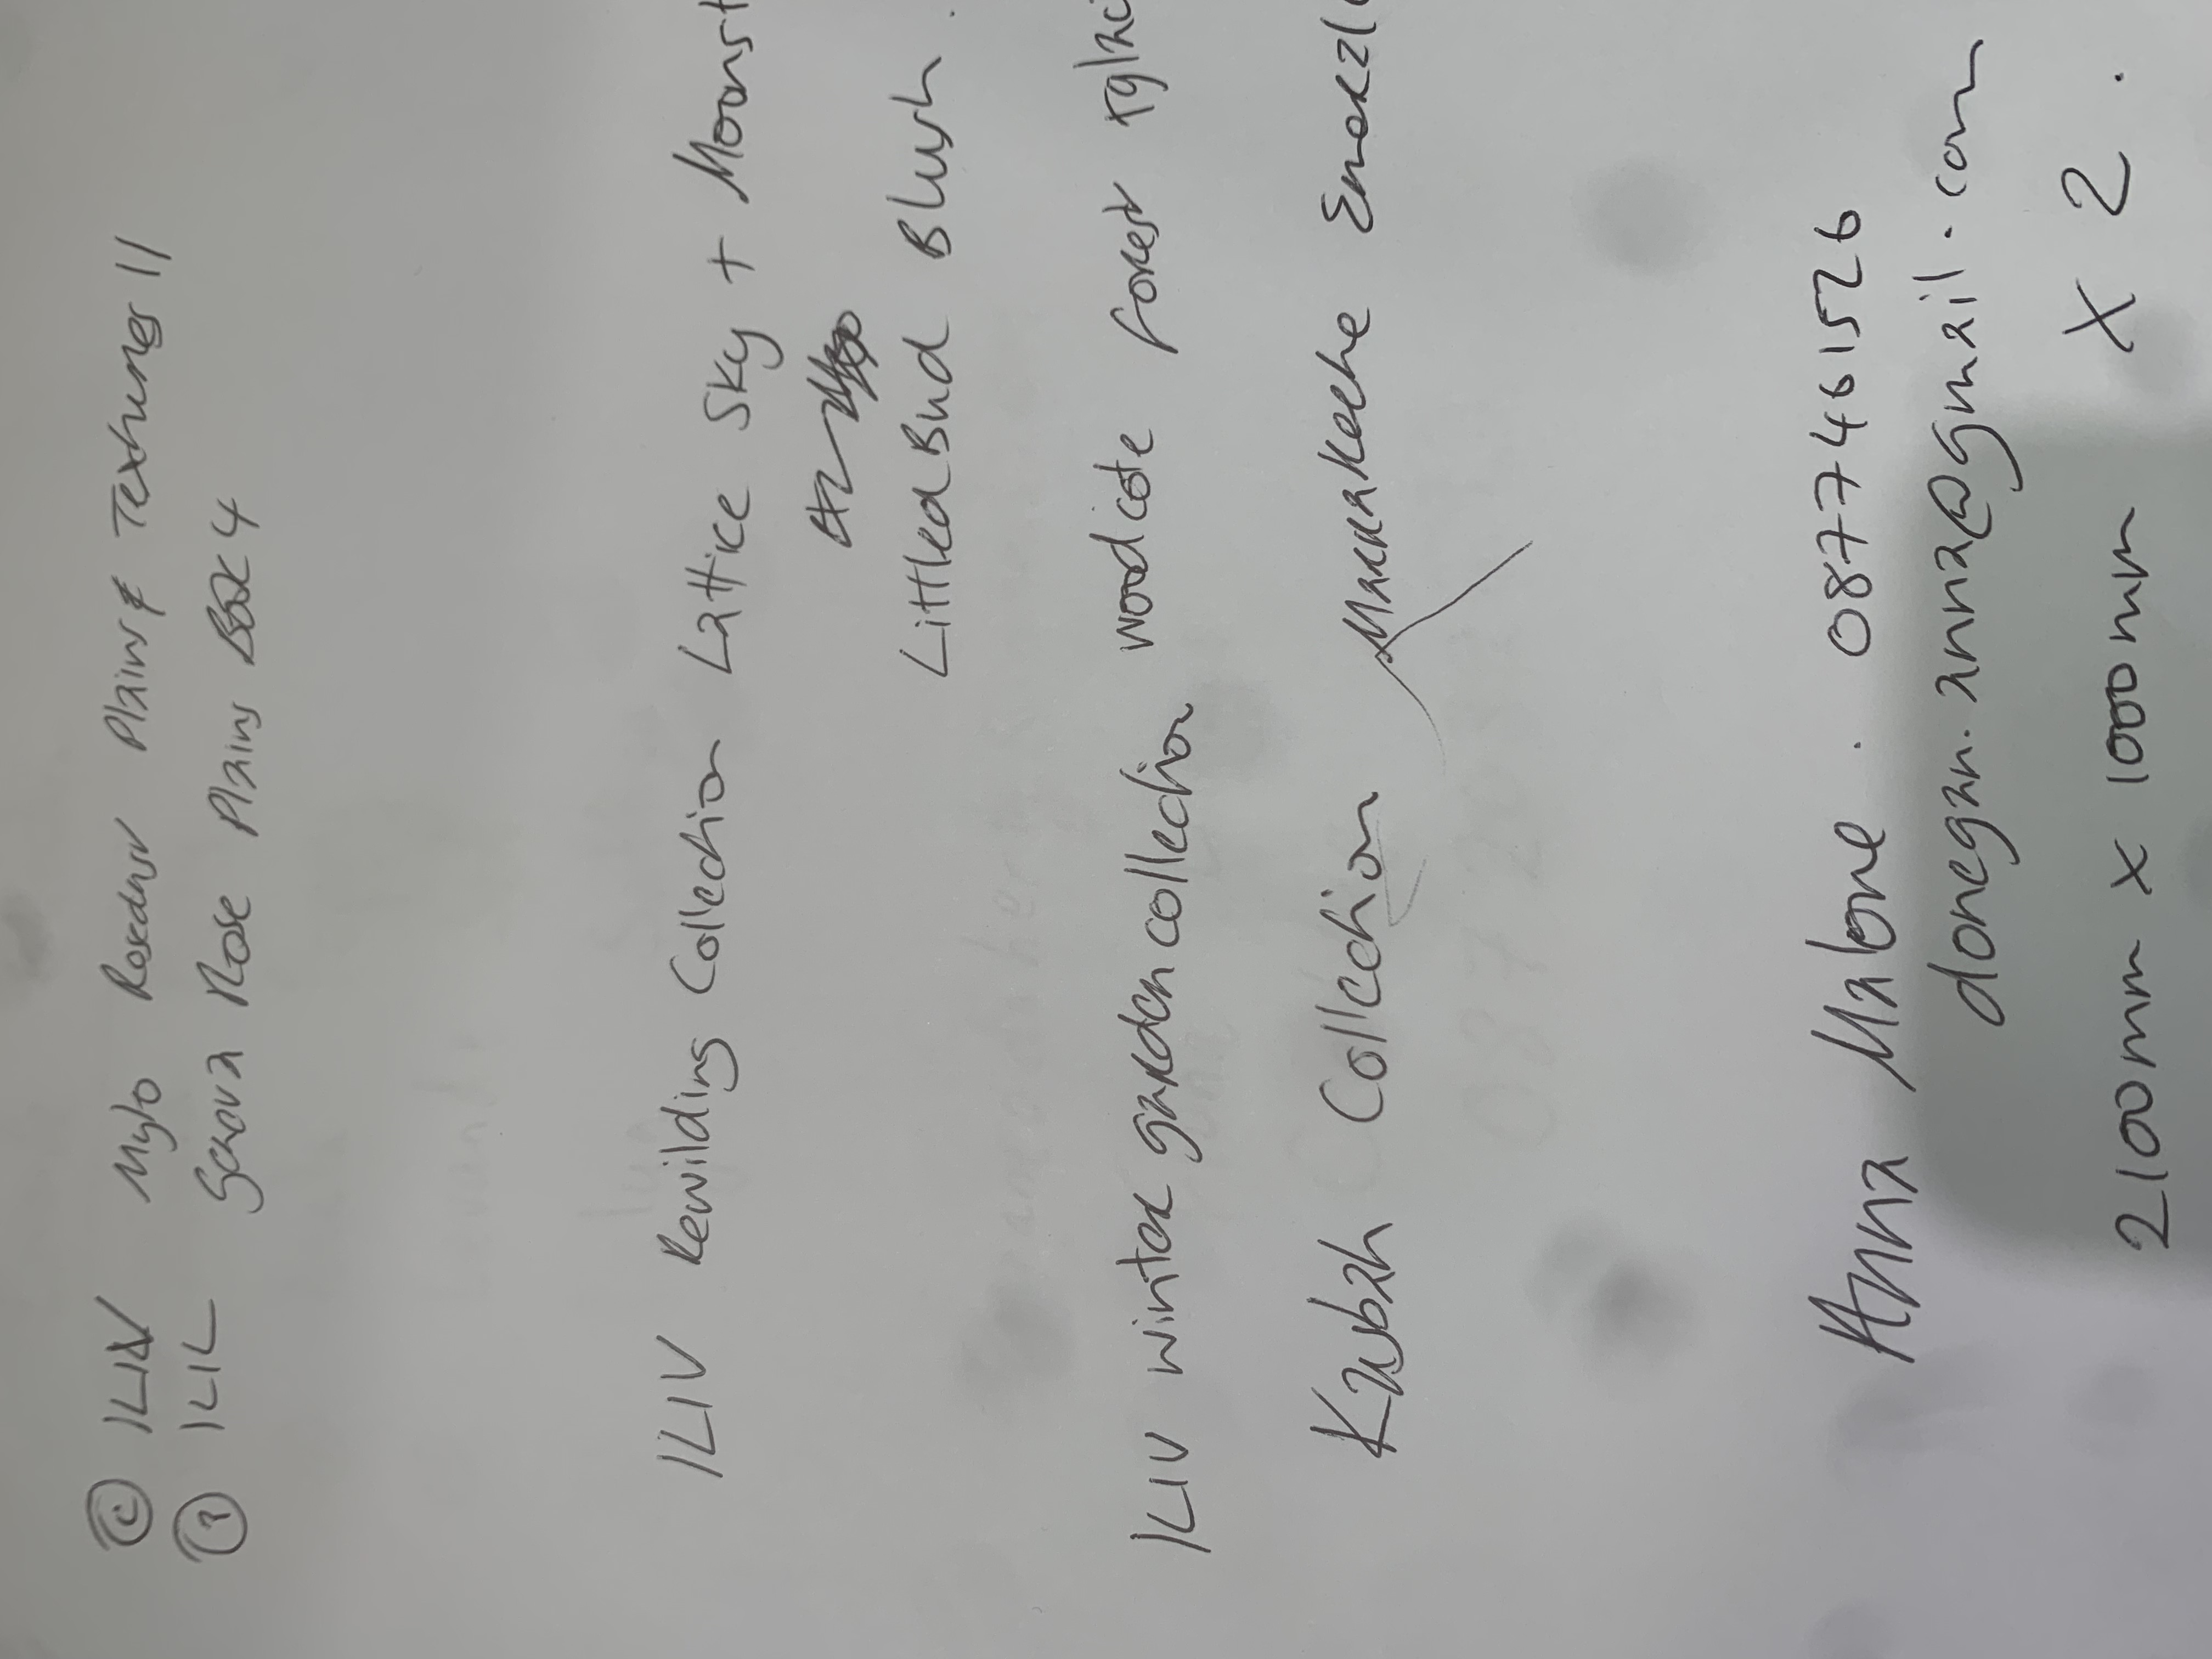 ① ILIV Mylo Rosedust Plains & Textures 11
② ILIL Scava Rose Plains Box 4
ILIV Rewilding Collection Lattice Sky + Moonst
LittleaBud Blush.
ILIV winter garden collection woodcote forest
Kasbah Collection Marrakeche Emerald
Anna Malone. 0877461526
donegan.anna@gmail.com
2100mm x 1000mm x 2.